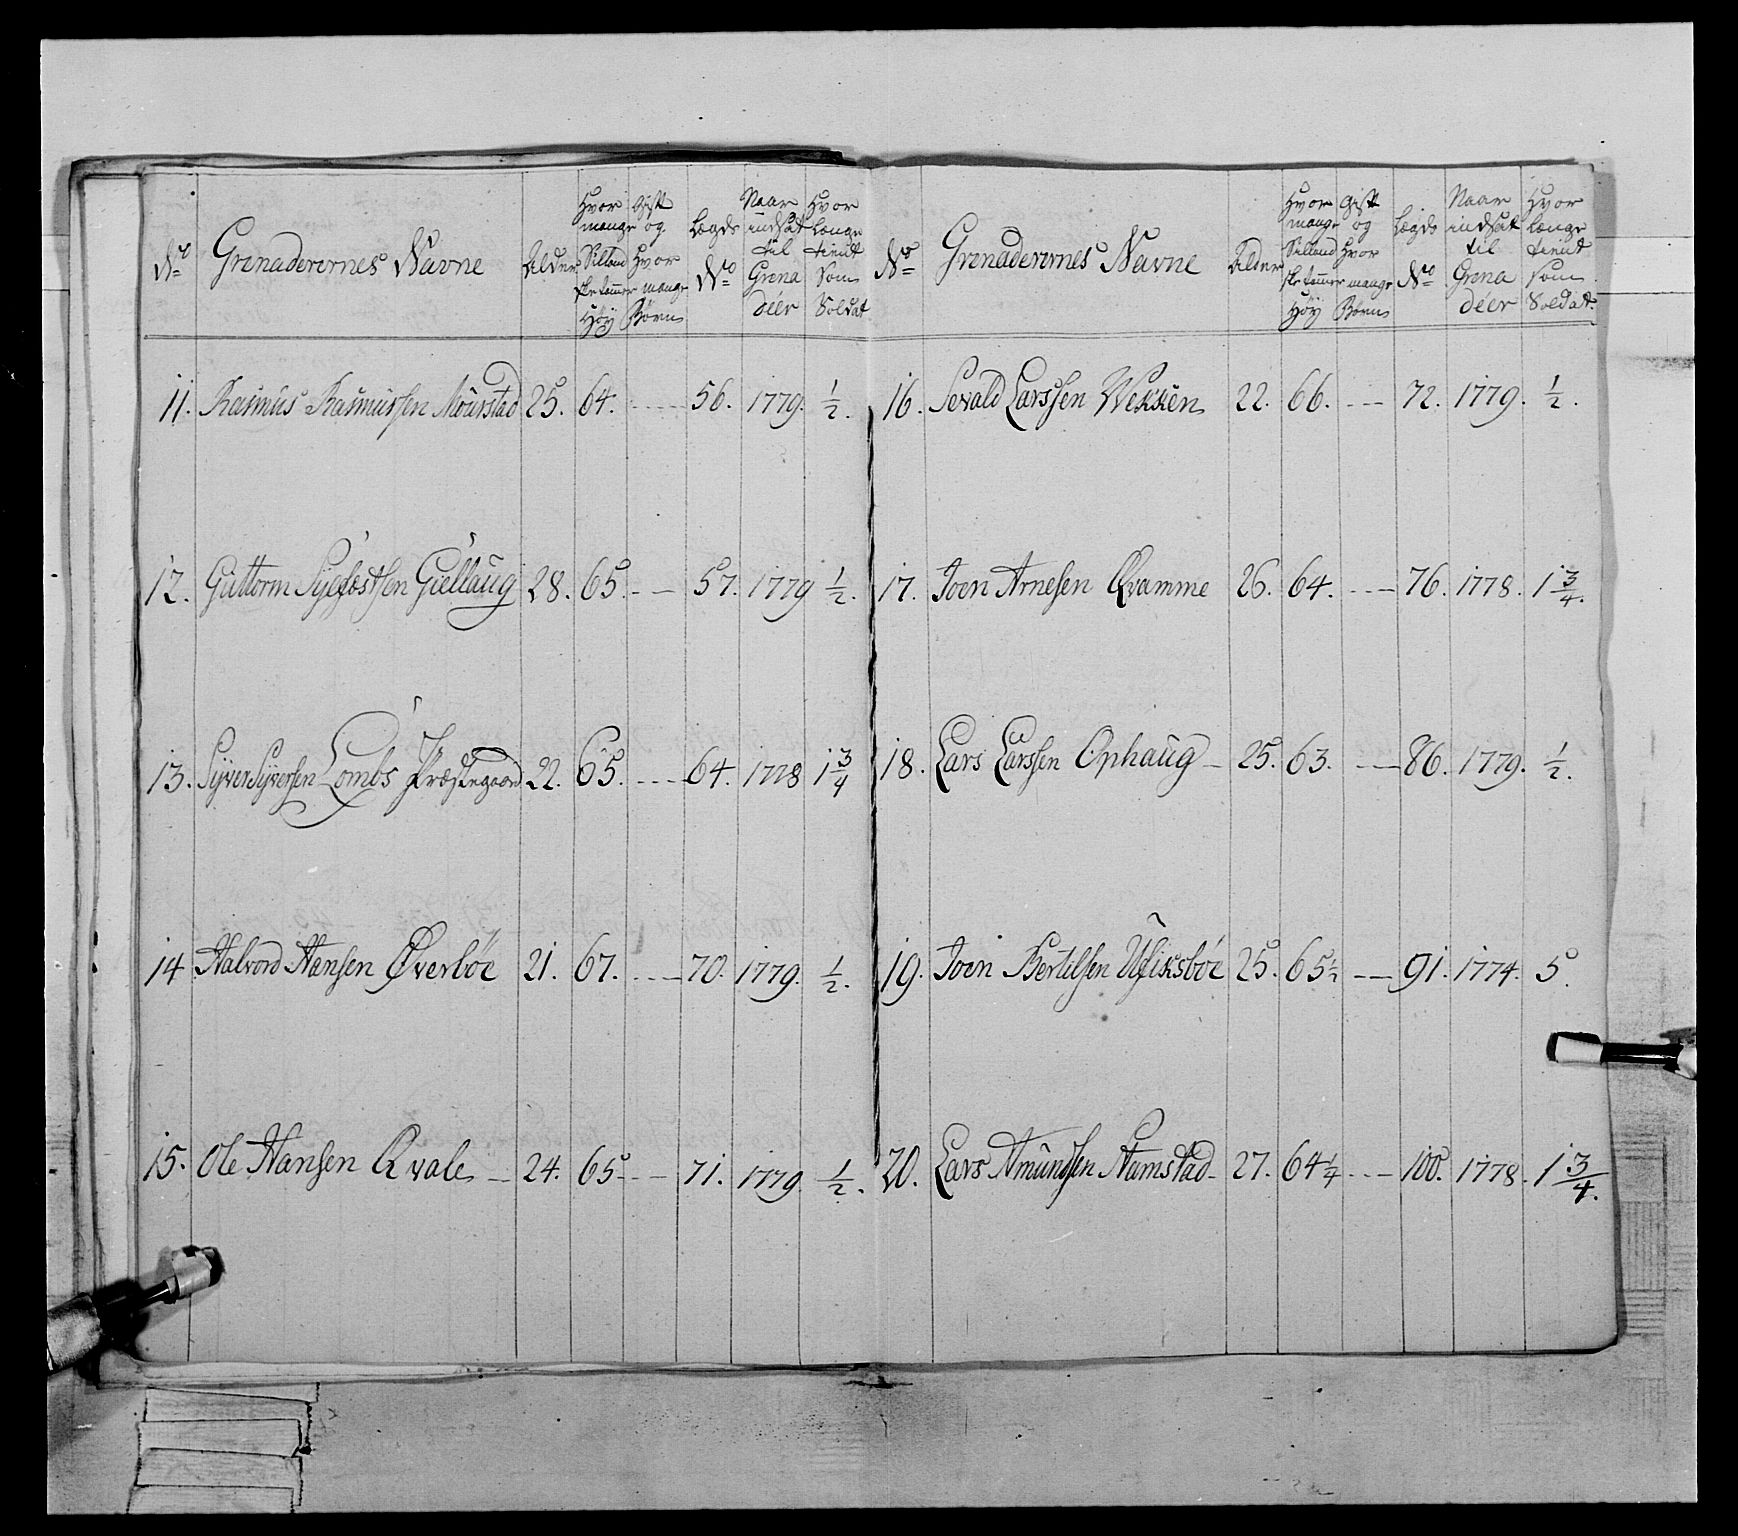 No Grenaderernes Navne Alder Hvor mange Sillandske tommer Høÿ Gift og Hvor mange Børn Lægds No Naar indsat til Grenadéer Hvor længe tient som Soldat
11. Rasmus Rasmussen Mourstad 25. 64. ---- 56. 1779. 1/2.
12. Guttorm Sÿefæstsen Giellaug 28. 65. --- 57. 1779 1/2.
13. Sÿver Sÿversen Lombs Præstegaard 22. 65. ---- 64. 1778 1 3/4
14 Halvord Hansen Øverböe 21. 67. ---- 70. 1779. 1/2.
15. Ole Hansen Qvale - 24. 65 --- 71. 1779. 1/2.
No Grenaderernes Navne Alder Hvor mange Sillandske tommer Høÿ Gift og Hvor mange Børn Lægds No Naar indsat til Grenadéer Hvor længe tient som Soldat.
16. Sevald Larssen Wekken 22. 66. --- 72. 1779. 1/2.
17. Joen Arnesen Qvamme 26. 64. --- 76. 1778. 1 3/4.
18. Lars Larssen Ophaug - 25. 63. --- 86. 1779. 1/2.
19. Joen Bertelsen Ufiksböe 25. 65 1/2 -- 91. 1774. 5.
20. Lars Amundsen Stamstad - 27. 64 1/4 --- 100. 1778. 1 3/4.